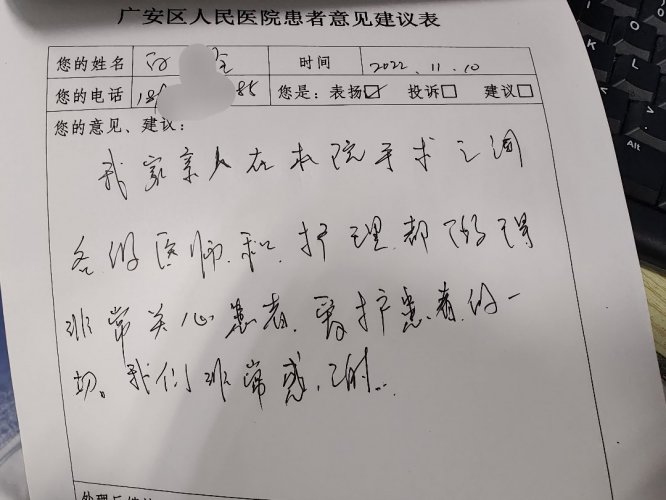 广安区人民医院患者意见建议表
您的姓名 时间 2022.11.10
您的电话 您是：表扬☑ 投诉□ 建议□
您的意见、建议：
我家亲人在本院手术之间
各级医师和护理都做得
非常关心患者，爱护患者的一
切。我们非常感谢...
Alt